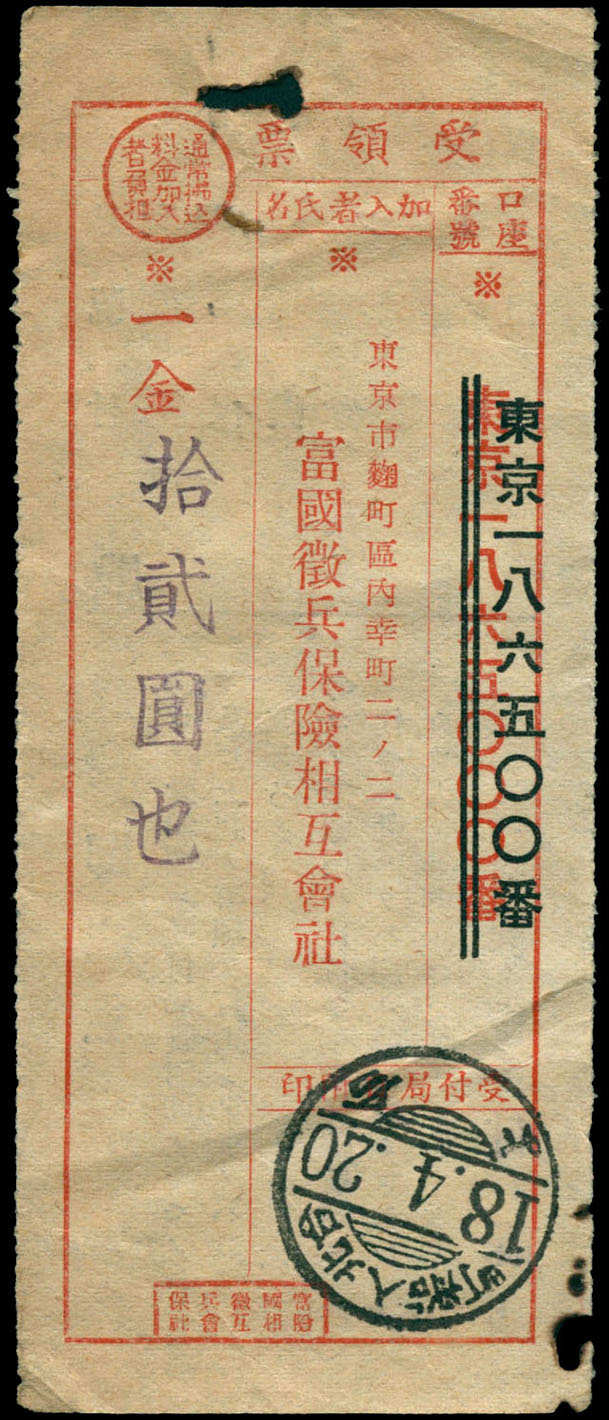 受領票
口座番號
※
東京一八六五〇〇〇番
東京一八六五〇〇番
加入者氏名
※
東京市麴町區內幸町二ノ二
富國徵兵保險相互會社
通常拂込
料金加入
者負擔
※
一金拾貳圓也
受付局印
18.4.20
富國徵兵保
險相互會社